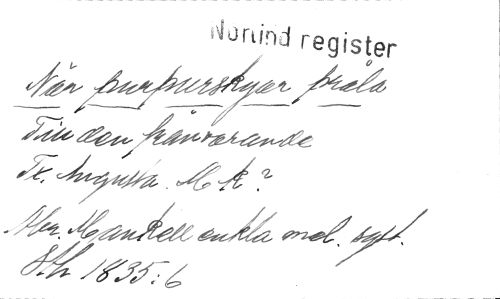 Norlind register
När purpurskyar pråla
Till den frånvarande
Tx. Augusta. M R?
Abr. Mankell enkla mel. syst.
Sth 1835:6